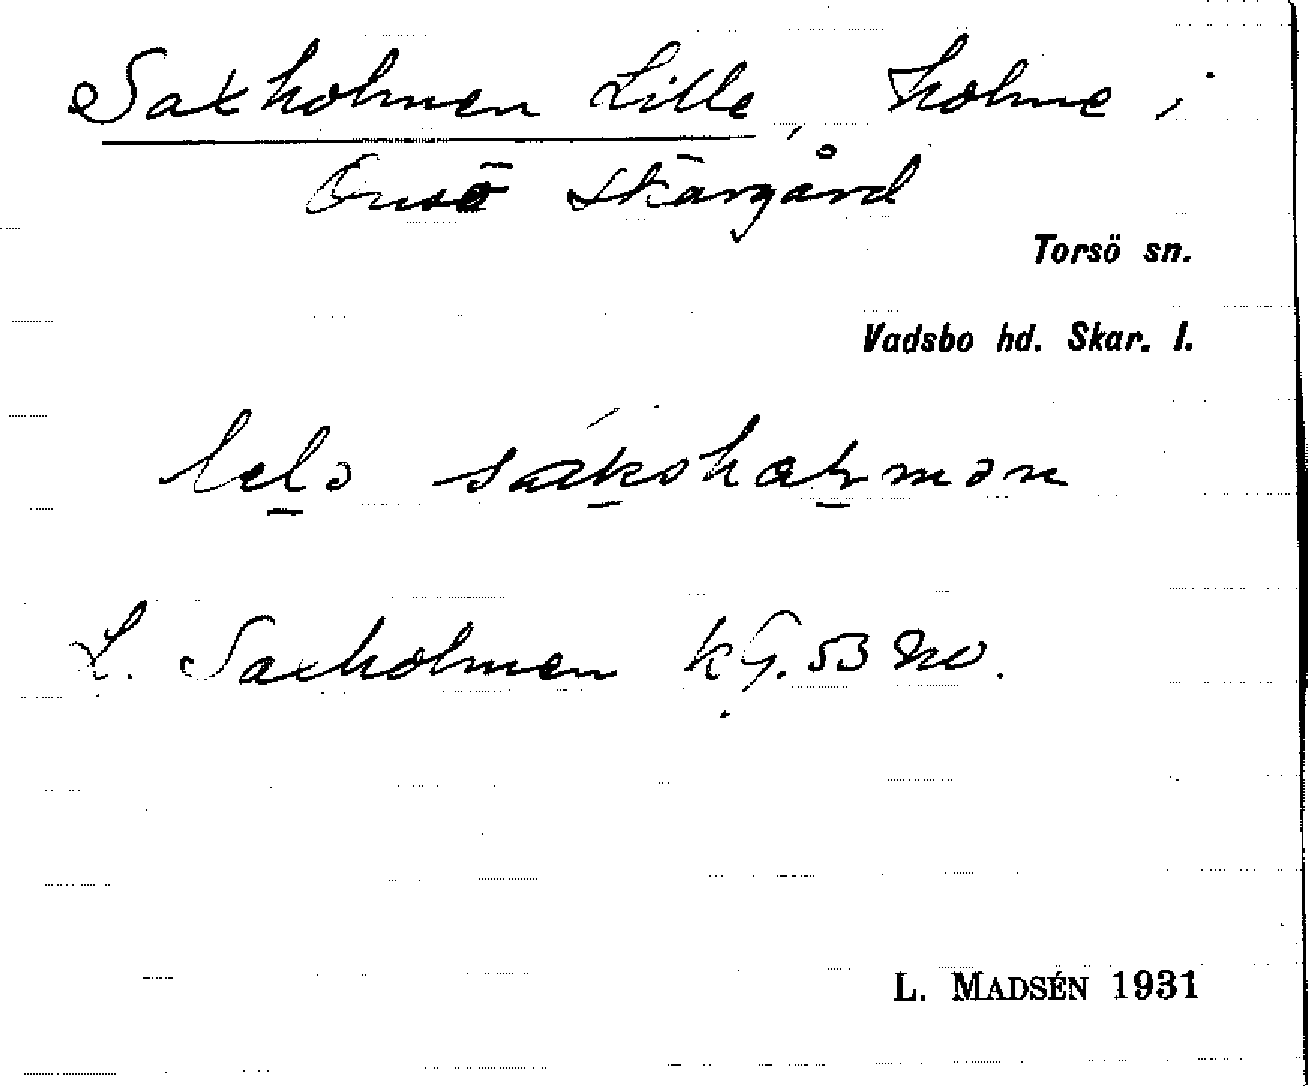 Saxholmen Lille, holme i
Onsö skärgård
Torsö sn.
Vadsbo hd. Skar. l.
lelə
L. Saxholmen kG. 53 NO.
L. MADSÉN 1931